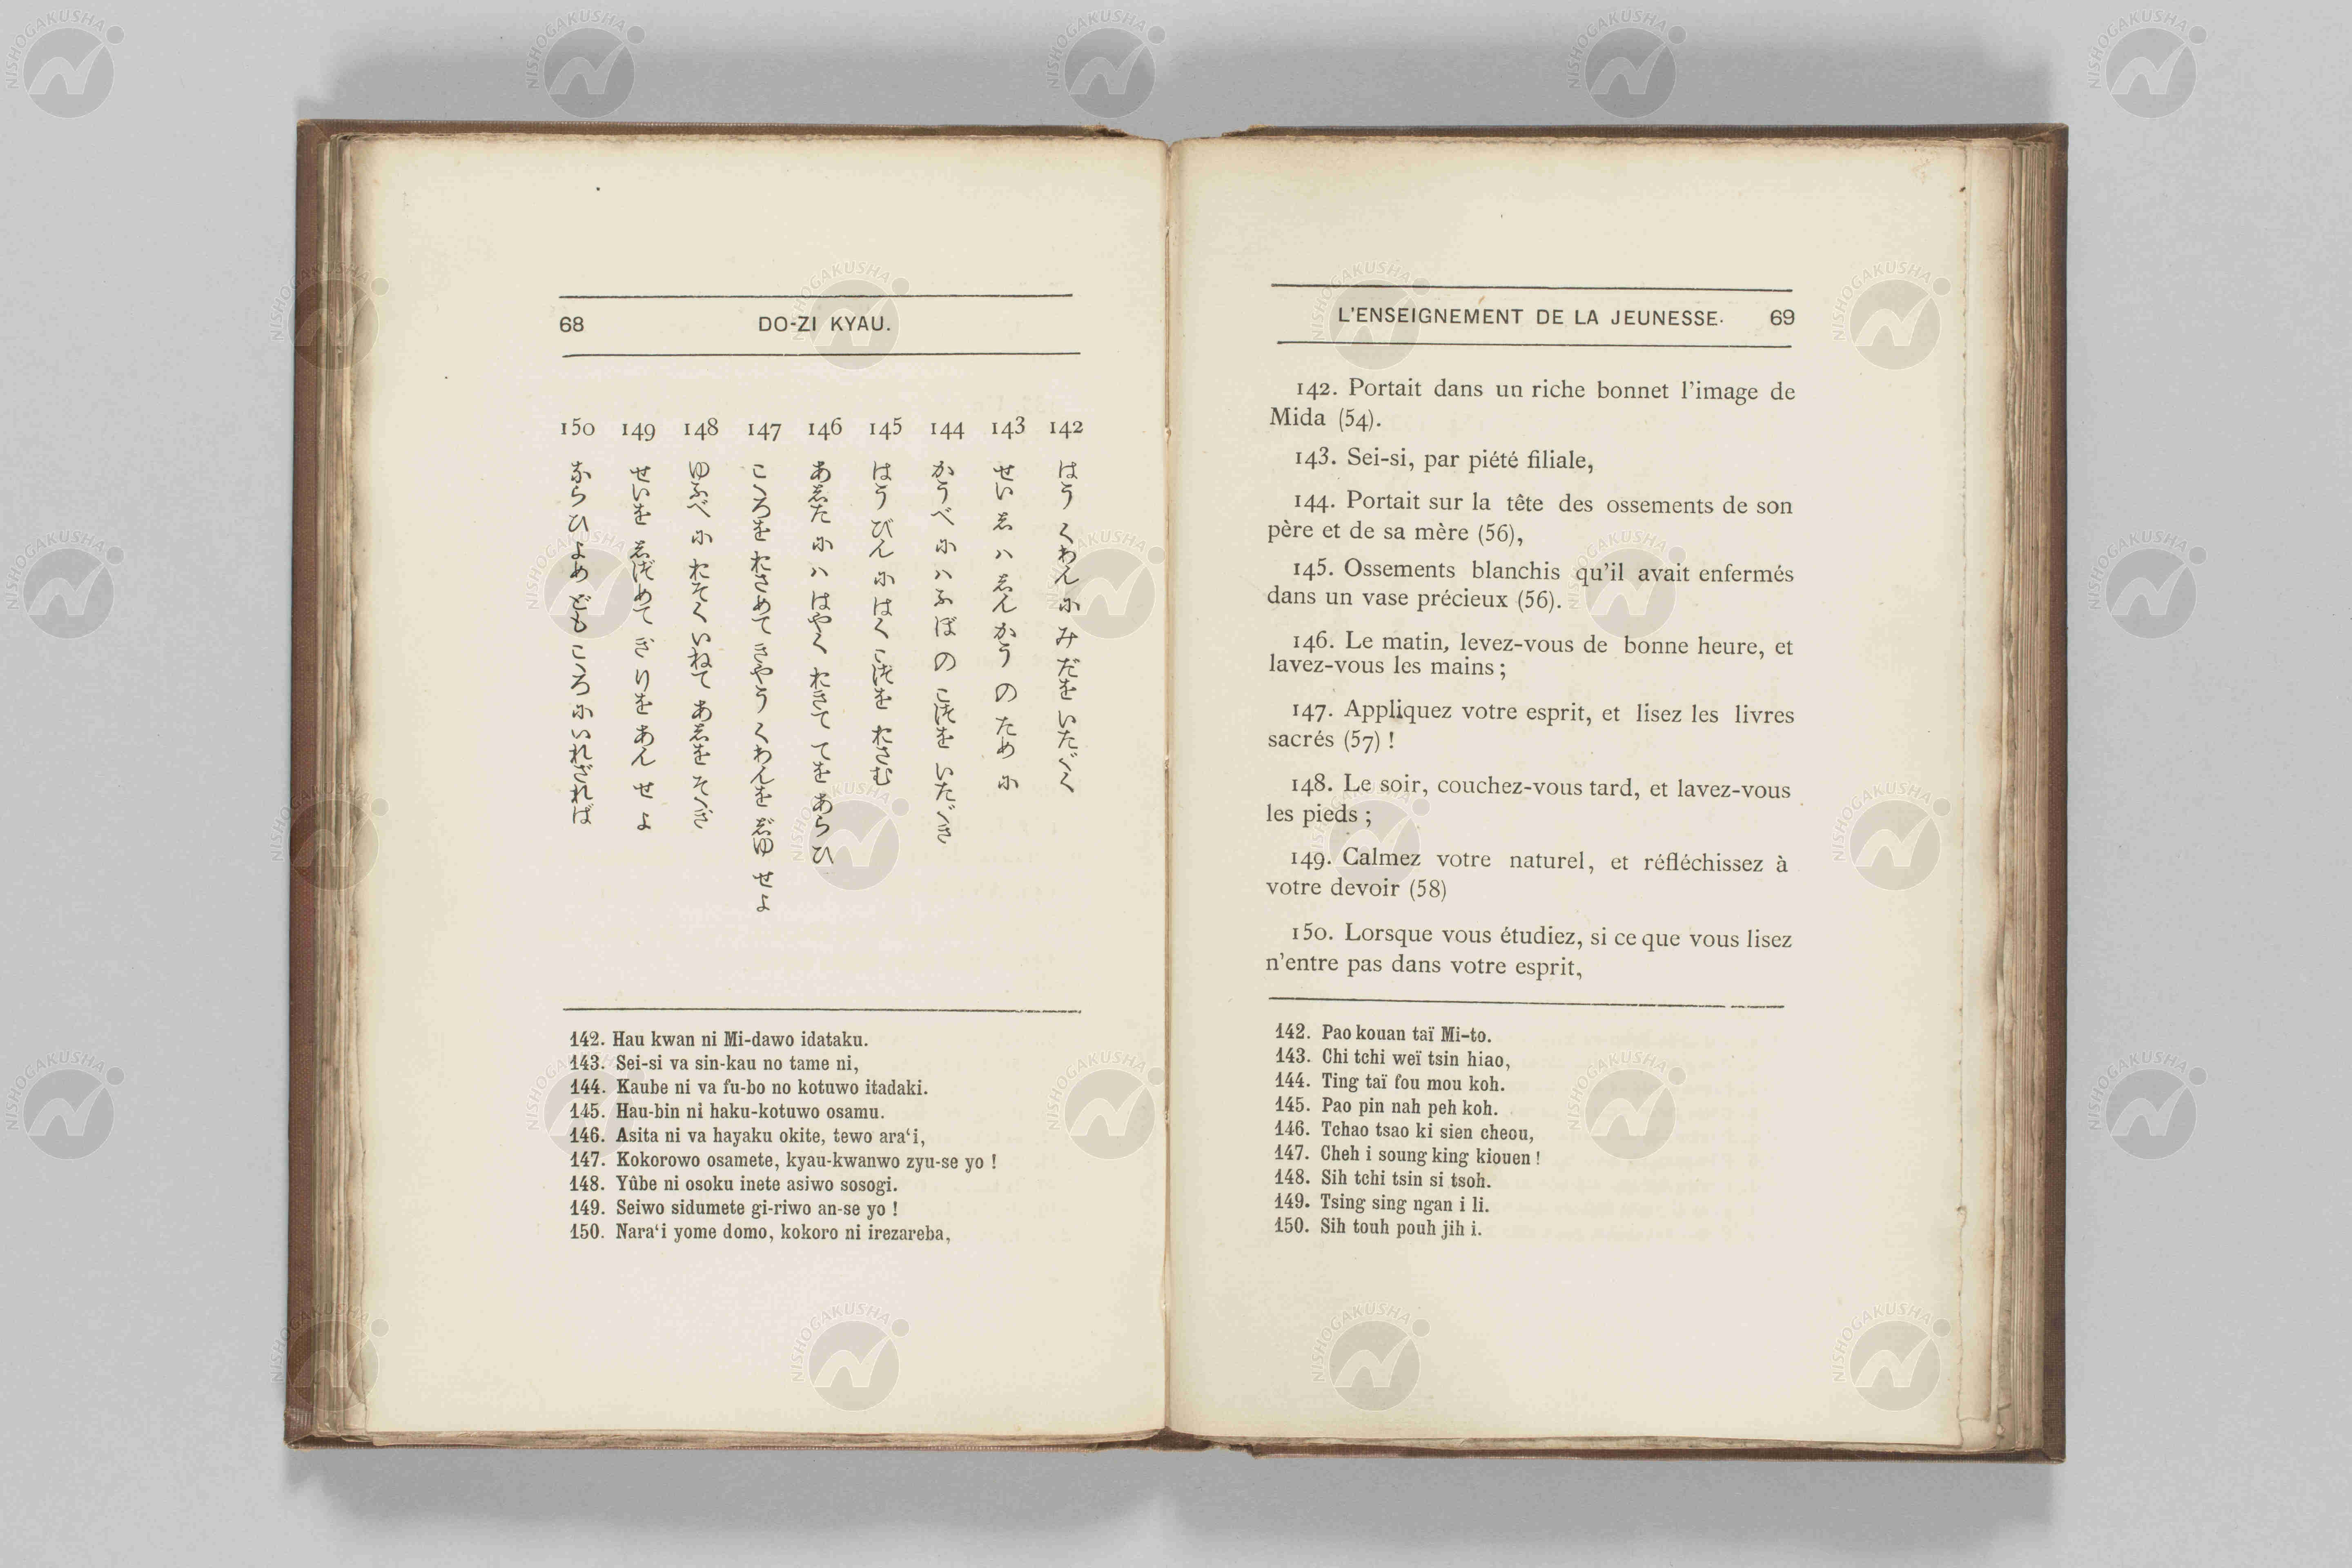 68 DO-ZI KYAU.
142 はうくわんにみだをいたゞく
143 せいしハしんかうのために
144 かうべにハふぼのこつをいたゞき
145 はうびんにはくこつをおさむ
146 あしたにハはやくおきててをあらひ
147 こゝろをおさめてきやうくわんをじゆせよ
148 ゆふべにおそくいねてあしをそゝぎ
149 せいをしづめてぎりをあんせよ
150 ならひよめどもこゝろにいれざれば
142. Hau kwan ni Mi-dawo idataku.
143. Sei-si va sin-kau no tame ni,
144. Kaube ni va fu-bo no kotuwo itadaki.
145. Hau-bin ni haku-kotuwo osamu.
146. Asita ni va hayaku okite, tewo ara‘i,
147. Kokorowo osamete, kyau-kwanwo zyu-se yo !
148. Yûbe ni osoku inete asiwo sosogi.
149. Seiwo sidumete gi-riwo an-se yo !
150. Nara‘i yome domo, kokoro ni irezareba,
L'ENSEIGNEMENT DE LA JEUNESSE. 69
142. Portait dans un riche bonnet l'image de
Mida (54).
143. Sei-si, par piété filiale,
144. Portait sur la tête des ossements de son
père et de sa mère (56),
145. Ossements blanchis qu'il avait enfermés
dans un vase précieux (56).
146. Le matin, levez-vous de bonne heure, et
lavez-vous les mains ;
147. Appliquez votre esprit, et lisez les livres
sacrés (57) !
148. Le soir, couchez-vous tard, et lavez-vous
les pieds ;
149. Calmez votre naturel, et réfléchissez à
votre devoir (58)
150. Lorsque vous étudiez, si ce que vous lisez
n'entre pas dans votre esprit,
142. Pao kouan taï Mi-to.
143. Chi tchi weï tsin hiao,
144. Ting taï fou mou koh.
145. Pao pin nah peh koh.
146. Tchao tsao ki sien cheou,
147. Cheh i soung king kiouen !
148. Sih tchi tsin si tsoh.
149. Tsing sing ngan i li.
150. Sih touh pouh jih i.
NISHOGAKUSHA